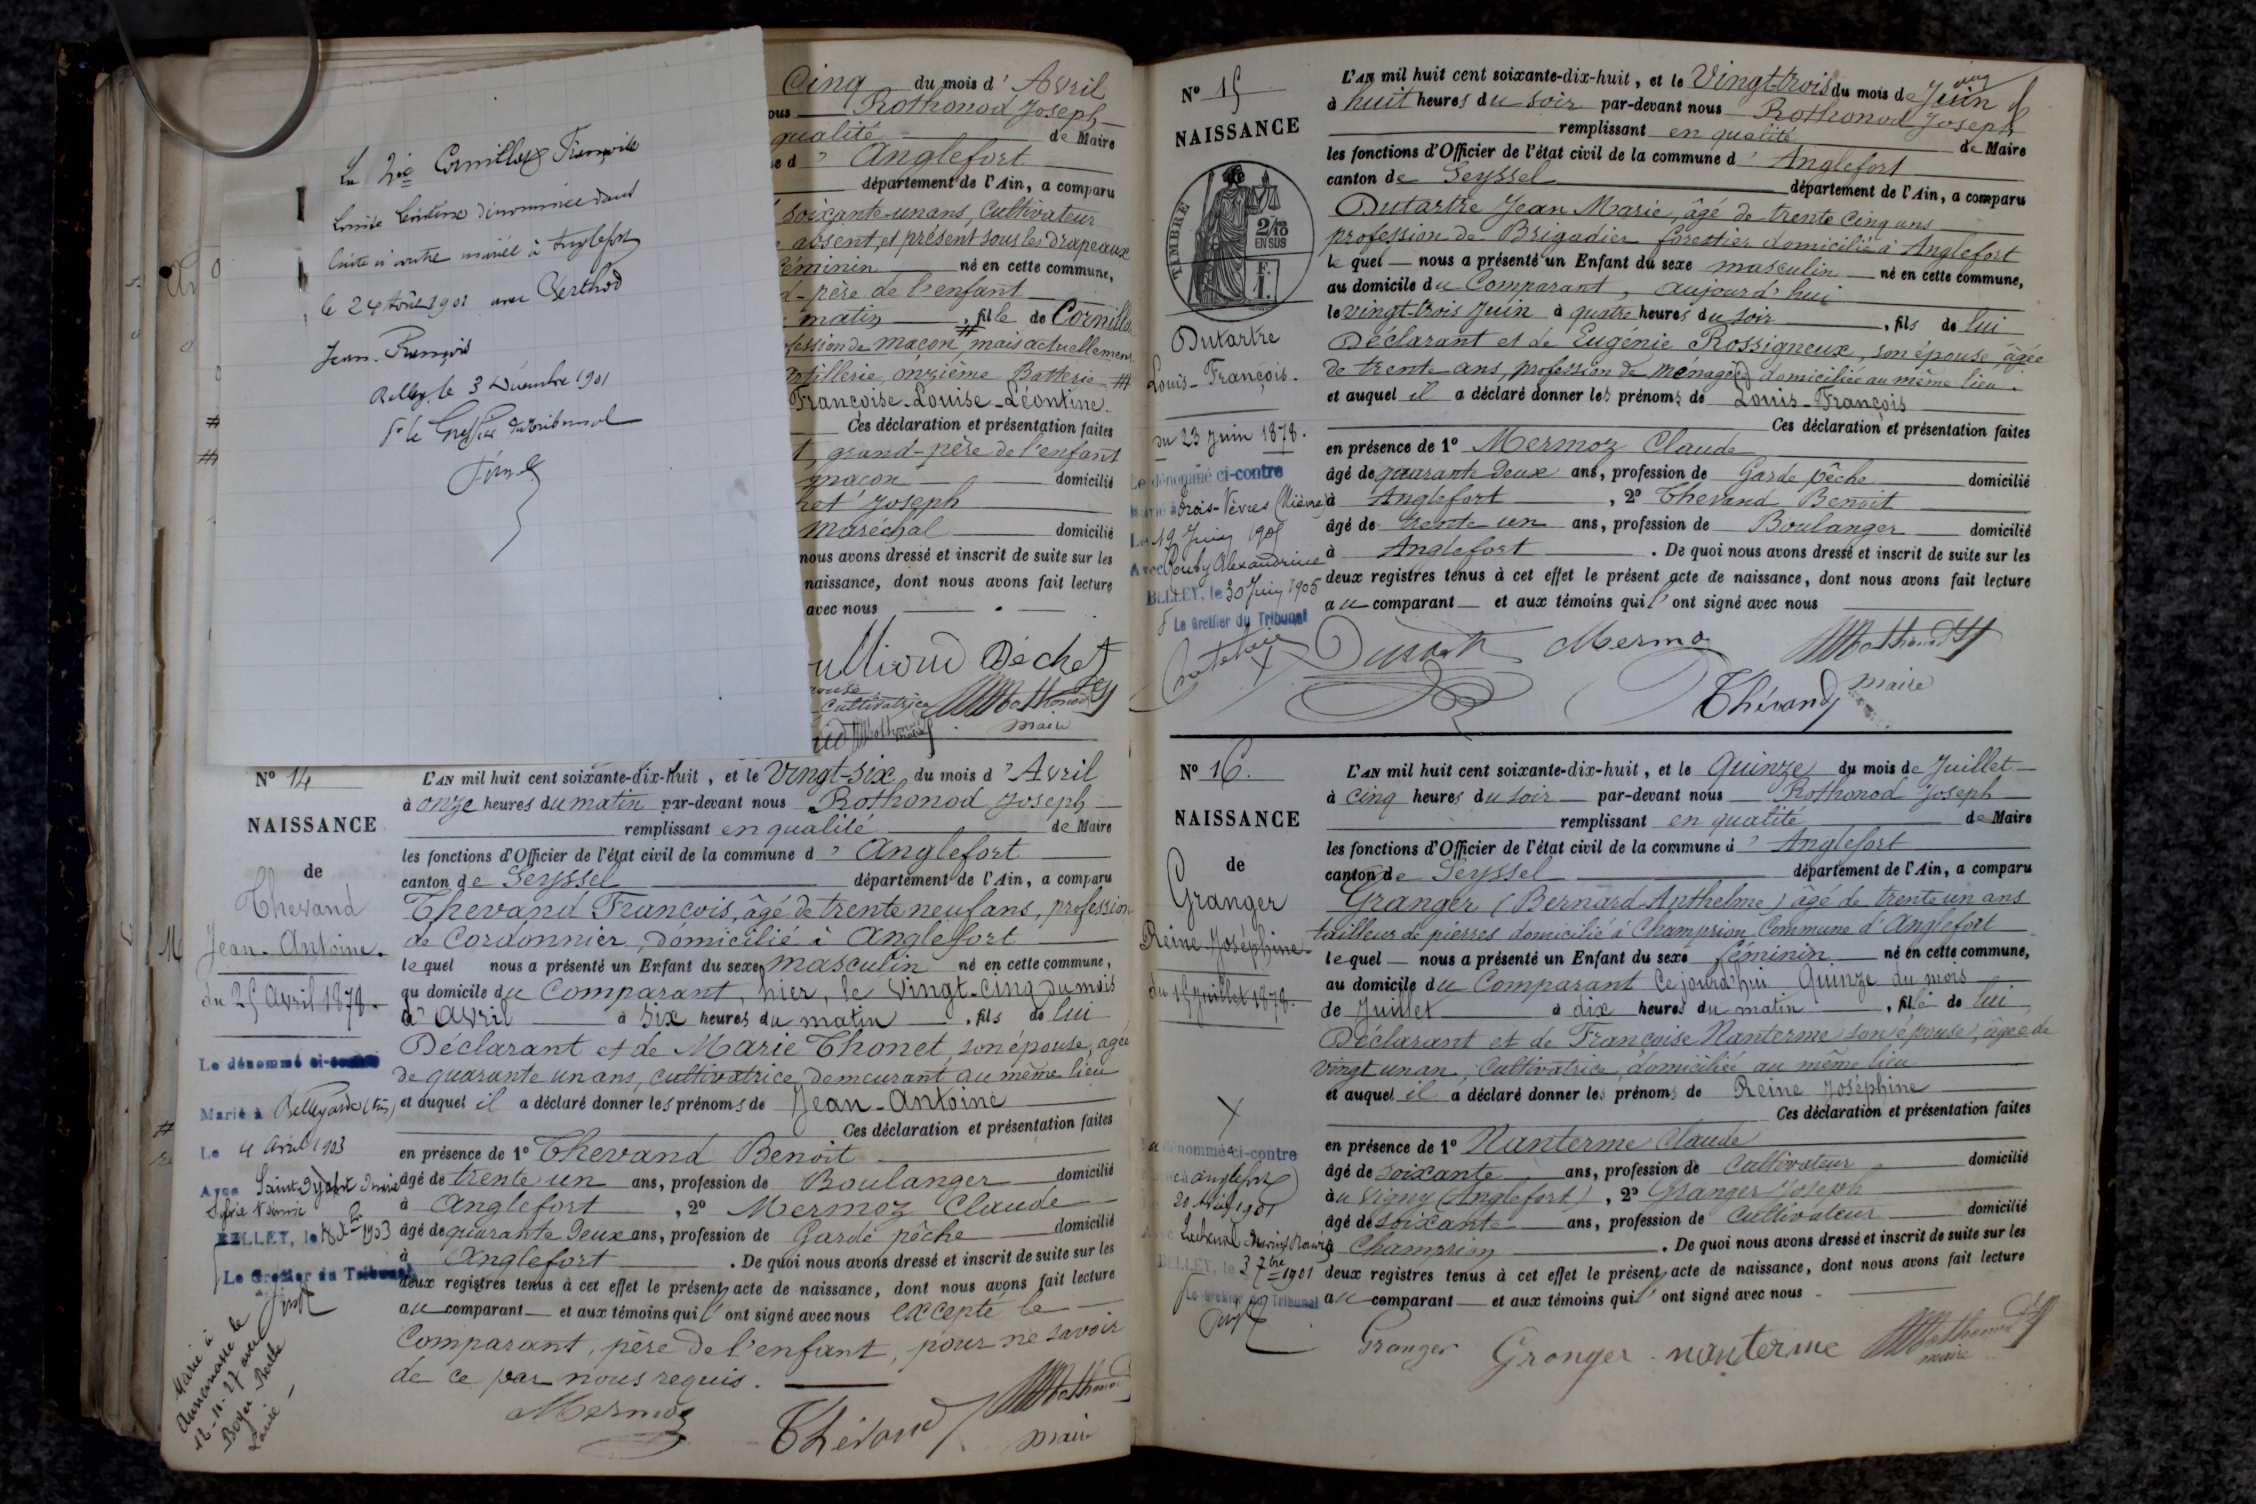 La dite Cornilloux Françoise
Louise Léontine dénommée dans
l'acte ci contre mariée à Anglefort
le 24 Août 1901 avec Berthod
Jean-François
Belley, le 3 Décembre 1901
Pr le Greffier du tribunal
Cinq du mois d'Avril
ous Rothonod Joseph
qualité de Maire
e d'Anglefort
département de l'Ain, a comparu
soixante-un ans, Cultivateur
absent, et présent sous les drapeaux
féminin né en cette commune,
d-père de l'enfant
matin, fille de Cornillo
fession de maçon mais actuellement
Artillerie, onzième Batterie #
Françoise-Louise-Léontine.
Ces déclaration et présentation faites
t, grand-père de l'enfant
maçon domicilié
het Joseph
Maréchal domicilié
nous avons dressé et inscrit de suite sur les
naissance, dont nous avons fait lecture
avec nous
Déchet
cultivatrice Rothonod
maire
N° 14
NAISSANCE
de
Thevand
Jean-Antoine.
du 25 Avril 1878.
Le dénommé ci-contre
Marié à Bellegarde (Ain)
Le 4 Avril 1903
Avec
BELLEY, le 1903
Le Greffier du Tribunal
Marié à
Annemasse le
12-11-27 avec
Boyer Berthe
L'AN mil huit cent soixante-dix-huit, et le Vingt-six du mois d'Avril
à onze heures du matin par-devant nous Rothonod Joseph
remplissant en qualité de Maire
les fonctions d'Officier de l'état civil de la commune d'Anglefort
canton de Seyssel département de l'Ain, a comparu
Thevand François, âgé de trente neuf ans, profession
de Cordonnier, domicilié à Anglefort
lequel nous a présenté un Enfant du sexe masculin né en cette commune,
au domicile du Comparant, hier, le Vingt-cinq du mois
d'avril à six heures du matin, fils de lui
Déclarant et de Marie Thonet, son épouse, âgée
de quarante un ans, cultivatrice, demeurant au même lieu
et auquel il a déclaré donner les prénoms de Jean-Antoine
Ces déclaration et présentation faites
en présence de 1° Thevand Benoit
âgé de trente un ans, profession de Boulanger domicilié
à Anglefort, 2° Mermoz Claude
âgé de quarante Deux ans, profession de Garde pêche domicilié
à Anglefort. De quoi nous avons dressé et inscrit de suite sur les
deux registres tenus à cet effet le présent acte de naissance, dont nous avons fait lecture
au comparant et aux témoins qui l'ont signé avec nous excepté le
Comparant, père de l'enfant, pour ne savoir
de ce par nous requis.
Mermoz Thévand Rothonod
maire
N° 15
NAISSANCE
TIMBRE
2/10
EN SUS
F. 1.
Dutartre
Louis-François.
du 23 Juin 1878.
Le dénommé ci-contre
marié à Trois-Vèvres (Nièvre)
Le 19 Juin 1905
Avec Pouby Alexandrine
BELLEY, le 30 Juin 1905
Le Greffier du Tribunal
L'AN mil huit cent soixante-dix-huit, et le Vingt-trois du mois de Juin
à huit heures du soir par-devant nous Rothonod Joseph
remplissant en qualité de Maire
les fonctions d'Officier de l'état civil de la commune d'Anglefort
canton de Seyssel département de l'Ain, a comparu
Dutartre Jean Marie, âgé de trente cinq ans
profession de Brigadier forestier domicilié à Anglefort
lequel nous a présenté un Enfant du sexe masculin né en cette commune,
au domicile du Comparant, aujourd'hui
le vingt-trois Juin à quatre heures du soir, fils de lui
Déclarant et de Eugénie Rossigneux, son épouse, âgée
de trente ans, profession de ménagère domiciliée au même lieu.
et auquel il a déclaré donner les prénoms de Louis-François
Ces déclaration et présentation faites
en présence de 1° Mermoz Claude
âgé de quarante Deux ans, profession de Garde pêche domicilié
à Anglefort, 2° Thevand Benoit
âgé de trente un ans, profession de Boulanger domicilié
à Anglefort. De quoi nous avons dressé et inscrit de suite sur les
deux registres tenus à cet effet le présent acte de naissance, dont nous avons fait lecture
au comparant et aux témoins qui l'ont signé avec nous
Mermoz Rothonod
Thévand maire
N° 16.
NAISSANCE
de
Granger
Reine-Joséphine.
du 15 Juillet 1878.
La dénommée ci-contre
à Anglefort
20 1901
BELLEY, le 3 7bre 1901
Le Greffier du Tribunal
L'AN mil huit cent soixante-dix-huit, et le Quinze du mois de Juillet
à cinq heures du soir par-devant nous Rothonod Joseph
remplissant en qualité de Maire
les fonctions d'Officier de l'état civil de la commune d'Anglefort
canton de Seyssel département de l'Ain, a comparu
Granger (Bernard Anthelme) âgé de trente un ans
tailleur de pierres domicilié à Champrion Commune d'Anglefort
lequel nous a présenté un Enfant du sexe féminin né en cette commune,
au domicile du Comparant Ce jourd'hui Quinze du mois
de Juillet à dix heures du matin, fille de lui
Déclarant et de Françoise Nanterme son épouse, âgée de
vingt un an, Cultivatrice, domiciliée au même lieu
et auquel il a déclaré donner les prénoms de Reine Joséphine
Ces déclaration et présentation faites
en présence de 1° Nanterme Claude
âgé de soixante ans, profession de Cultivateur domicilié
à Vigny (Anglefort), 2° Granger Joseph
âgé de soixante ans, profession de Cultivateur domicilié
à Champrion. De quoi nous avons dressé et inscrit de suite sur les
deux registres tenus à cet effet le présent acte de naissance, dont nous avons fait lecture
au comparant et aux témoins qui l'ont signé avec nous
Granger Granger nanterme Rothonod
maire